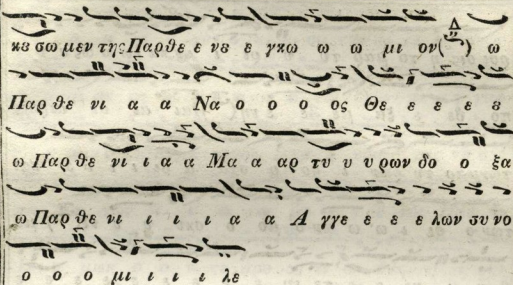 κε σω μεν της Παρ θε ε νε ε γκω ω ω μι ον (Δ) ω
Παρ θε νι α α Να ο ο ο ος Θε ε ε ε ε
ω Παρ θε νι ι α α Μα α αρ τυ υ υ ρων δο ο ξα
ω Παρ θε νι ι ι ι α α Α γγε ε ε ε λων συ νο
ο ο ο μι ι ι ι λε